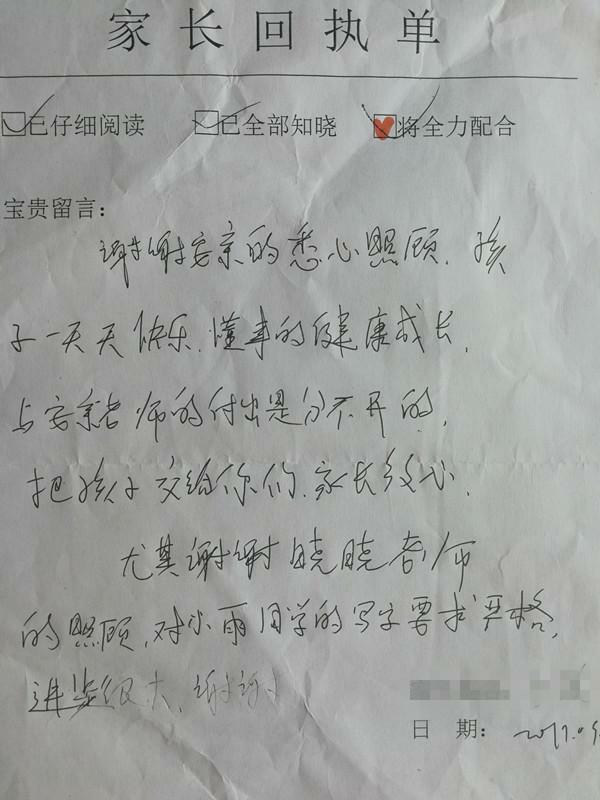 家长回执单
已仔细阅读 已全部知晓 将全力配合
宝贵留言：
谢谢安亲的悉心照顾，孩
子一天天快乐，懂事的健康成长，
与安亲老师的付出是分不开的，
把孩子交给你们，家长放心，
尤其谢谢晓晓老师
的照顾，对小雨同学的写字要求严格，
进步很大，谢谢
日 期：